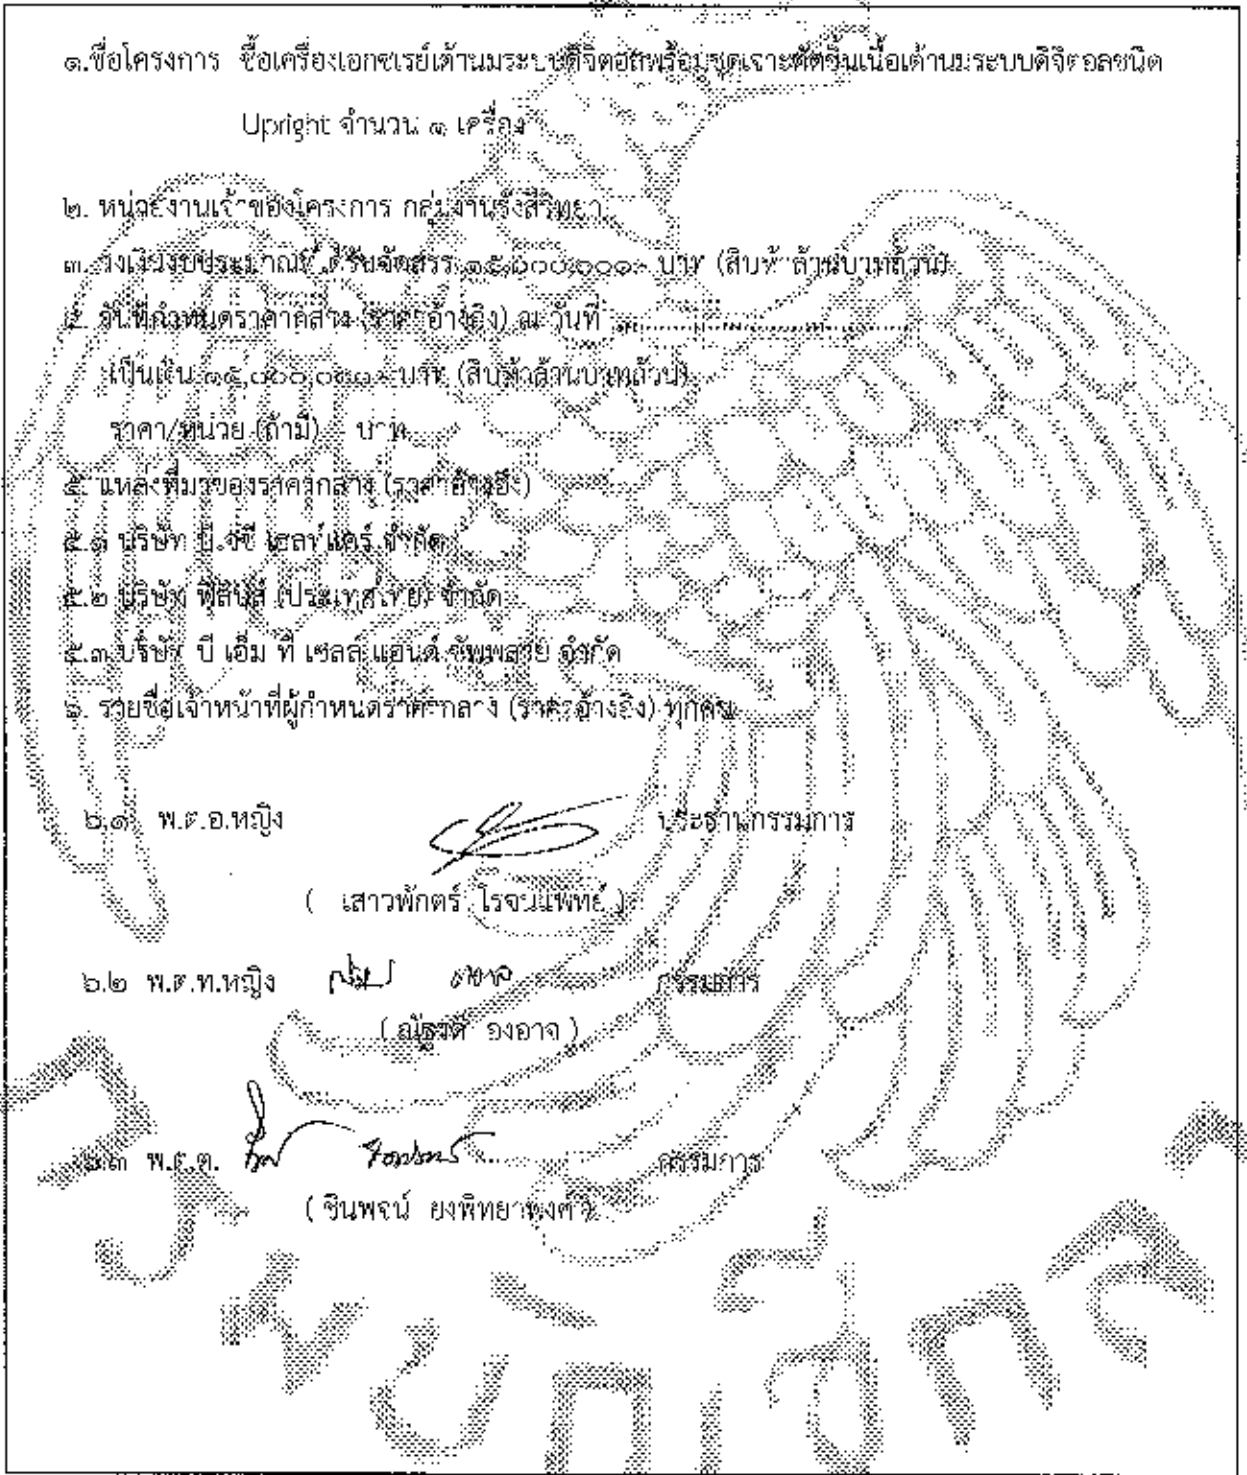 ๑.ชื่อโครงการ ซื้อเครื่องเอกซเรย์เต้านมระบบดิจิตอลพร้อมชุดเจาะตัดชิ้นเนื้อเต้านมระบบดิจิตอลชนิด
Upright จำนวน ๑ เครื่อง
๒. หน่วยงานเจ้าของโครงการ กลุ่มงานรังสีวิทยา
๓. วงเงินงบประมาณที่ได้รับจัดสรร ๑๕,๐๐๐,๐๐๐.- บาท (สิบห้าล้านบาทถ้วน)
๔. วันที่กำหนดราคากลาง (ราคาอ้างอิง) ณ วันที่ ............................
เป็นเงิน ๑๕,๐๐๐,๐๐๐.- บาท (สิบห้าล้านบาทถ้วน)
ราคา/หน่วย (ถ้ามี) - บาท
๕. แหล่งที่มาของราคากลาง (ราคาอ้างอิง)
๕.๑ บริษัท บี.จีซี เฮลท์แคร์ จำกัด
๕.๒ บริษัท ฟิลิปส์ (ประเทศไทย) จำกัด
๕.๓ บริษัท บี เอ็ม ที เซลล์ แอนด์ ซัพพลาย จำกัด
๖. รายชื่อเจ้าหน้าที่ผู้กำหนดราคากลาง (ราคาอ้างอิง) ทุกคน
๖.๑ พ.ต.อ.หญิง ประธานกรรมการ
( เสาวพักตร์ โรจนแพทย์ )
๖.๒ พ.ต.ท.หญิง กรรมการ
( ณัฐวดี องอาจ )
๖.๓ พ.ต.ต. กรรมการ
( ชินพจน์ ยงพิทยาพงศ์ )